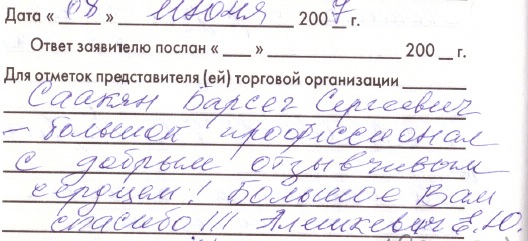 Дата « 08 » июня 2007 г.
Ответ заявителю послан « __ » ____________ 200 _ г.
Для отметок представителя (ей) торговой организации
Саакян Барсег Сергеевич
– большой профессионал
с добрым отзывчивым
сердцем! Большое Вам
спасибо!!! Алешкевич Е.Ю.